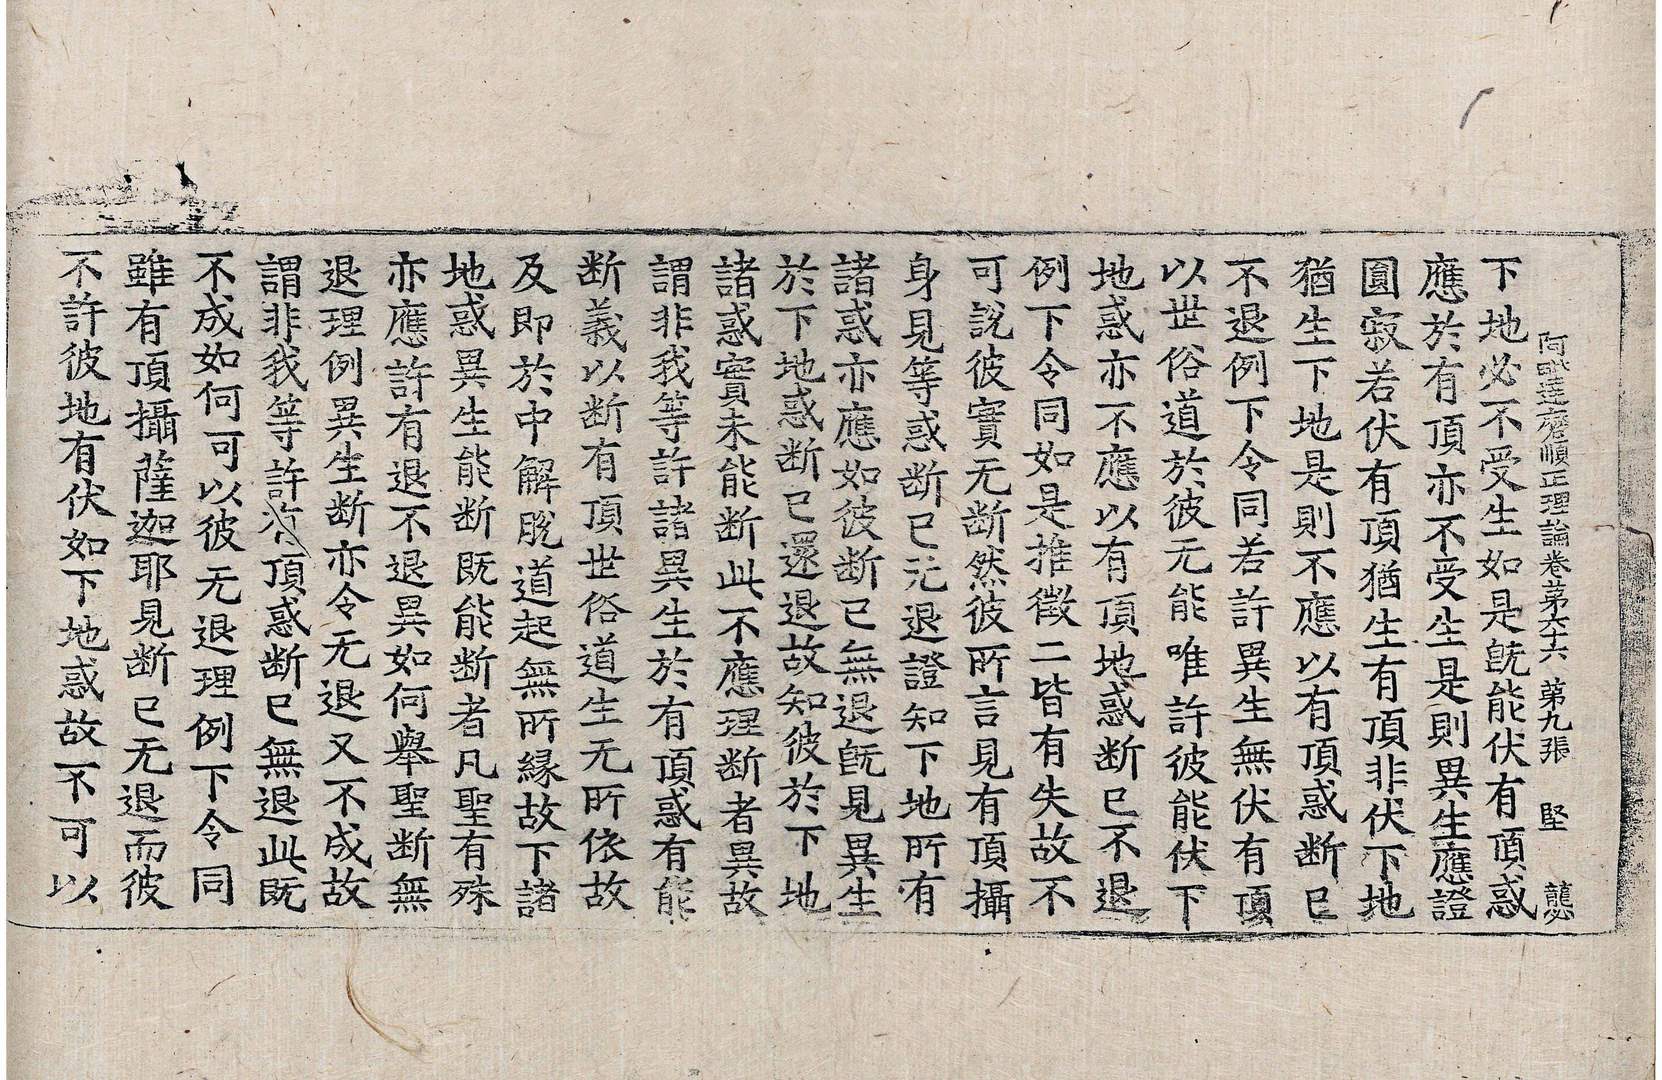 阿毗達磨順正理論卷第六十六 第九張 堅
下地必不受生如是旣能伏有頂惑
應於有頂亦不受生是則異生應證
圓寂若伏有頂猶生有頂非伏下地
猶生下地是則不應以有頂惑断已
不退例下令同若許異生無伏有頂
以世俗道於彼无能唯許彼能伏下
地惑亦不應以有頂地惑断已不退
例下令同如是推徵二皆有失故不
可說彼實无断然彼所言見有頂攝
身見等惑断已无退證知下地所有
諸惑亦應如彼断已無退旣見異生
於下地惑断已還退故知彼於下地
諸惑實未能断此不應理断者異故
謂非我等許諸異生於有頂惑有能
断義以断有頂世俗道生无所依故
及即於中解脫道起無所緣故下諸
地惑異生能断既能断者凡聖有殊
亦應許有退不退異如何舉聖断無
退理例異生断亦令无退又不成故
謂非我等許有頂惑断已無退此既
不成如何可以彼无退理例下令同
雖有頂攝薩迦耶見断已无退而彼
不許彼地有伏如下地惑故不可以